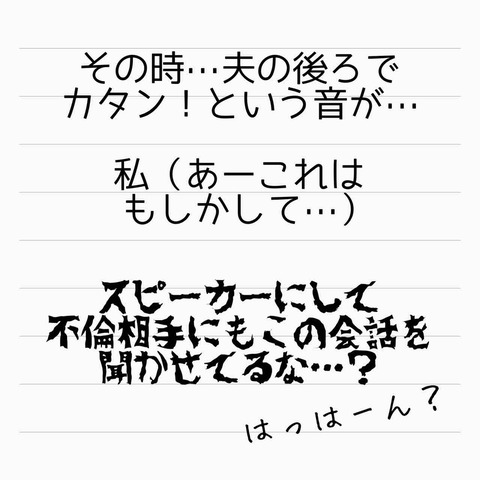 その時…夫の後ろで
カタン！という音が…
私（あーこれは
もしかして…）
スピーカーにして
不倫相手にもこの会話を
聞かせてるな…？
はっはーん？